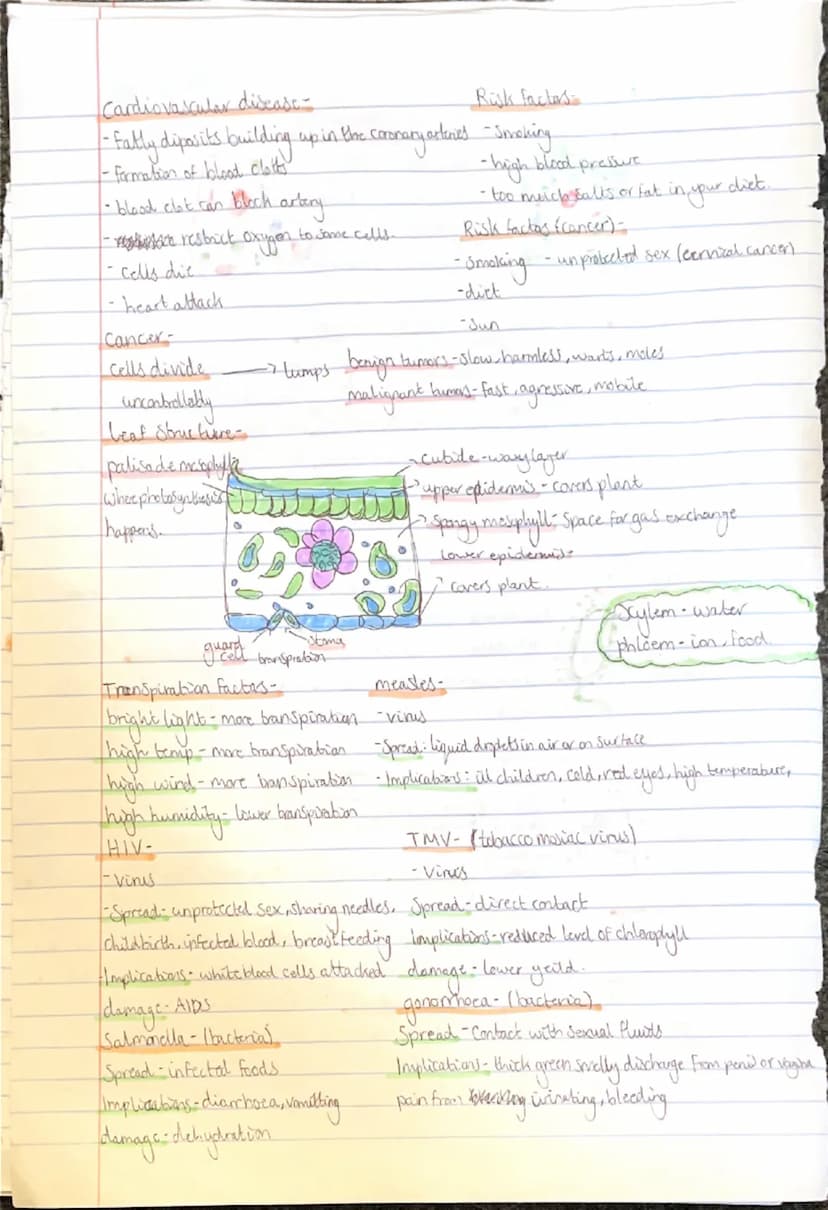 Cardiovascular disease-
- Fatty diposits building up in the coronary arteries
- formation of blood clotts
- blood clot can block artery
- restrict oxygen to some cells.
- cells die
- heart attack
Risk factors-
- Smoking
- high blood pressure
- too much salts or fat in your diet.
Risk factors (cancer)-
- Smoking - unprotected sex (cervical cancer)
- diet
- Sun
Cancer-
cells divide → lumps
uncontrollably
benign tumors - slow, harmless, warts, moles
malignant tumors - fast, agressive, mobile
Leaf Structure-
palisade mesophyll
where photosynthesis
happens.
cuticle - waxy layer
upper epidermis - covers plant
Spongy mesophyll - Space for gas exchange
Lower epidermis-
covers plant.
guard cell
Stoma
transpiration
Xylem - water
phloem - ion, food
Transpiration factors-
bright light - more transpiration
high temp - more transpiration
high wind - more transpiration
high humidity - lower transpiration
measles-
- virus
- Spread: liquid droplets in air or on surface
- Implications: ill children, cold, red eyes, high temperature,
HIV-
- virus
- Spread: unprotected sex, sharing needles,
childbirth, infected blood, breastfeeding
- Implications - white blood cells attacked
damage - AIDS
TMV- (tobacco mosiac virus)
- Virus
Spread - direct contact
implications - reduced level of chlorophyll
damage - lower yeild.
Salmonella - (bacteria)
Spread - infected foods
Implications - diarrhoea, vomitting
damage - dehydration
gonorrhoea - (bacteria)
Spread - Contact with Sexual fluids
Implications - thick green smelly discharge from penis or vagina
pain from urinating, bleeding